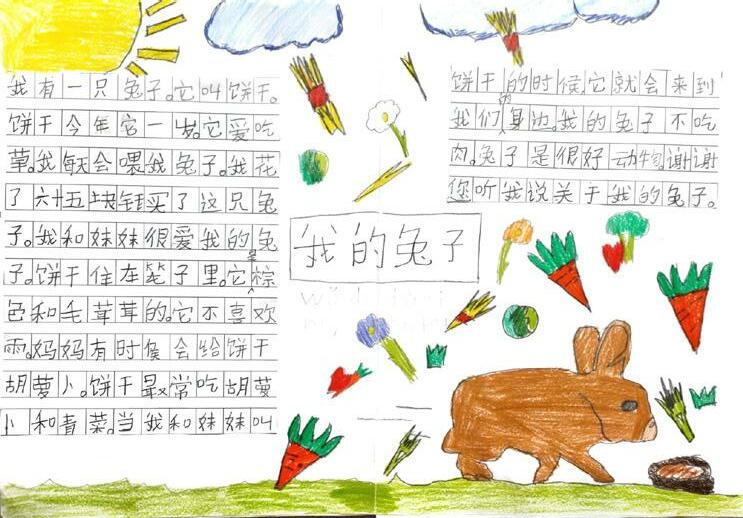 我有一只兔子。它叫饼干。
饼干今年它一岁。它爱吃
草。我每天会喂我兔子。我花
了六十五块钱买了这只兔
子。我和妹妹很爱我的兔
子。饼干住在笼子里。它是棕
色和毛茸茸的。它不喜欢
雨。妈妈有时候会给饼干
胡萝卜。饼干最常吃胡萝
卜和青菜。当我和妹妹叫
我的兔子
饼干的时候，它就会来到
我们的身边。我的兔子不吃
肉。兔子是很好动物。谢谢
您听我说关于我的兔子。